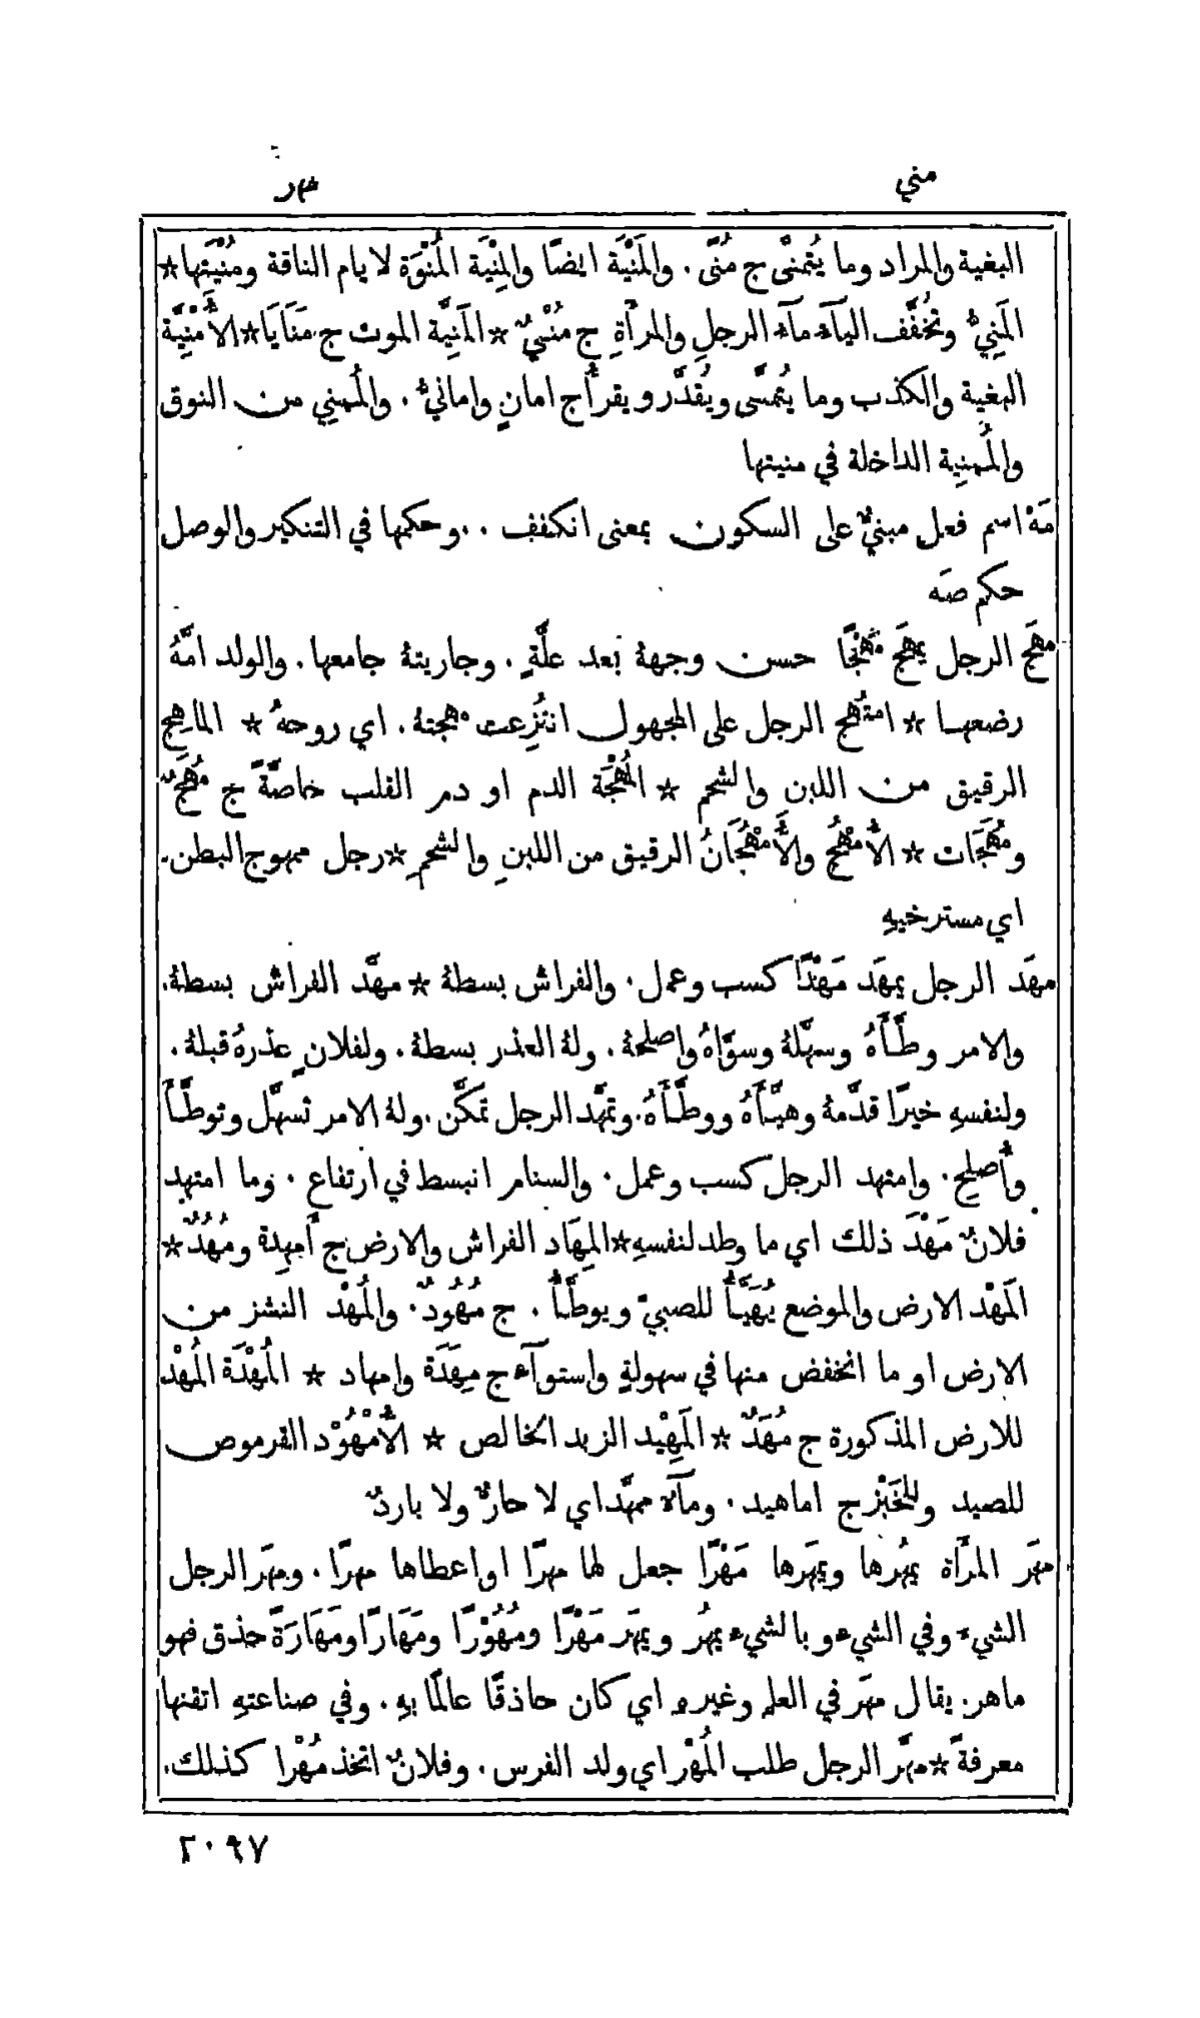 مني
مهر
البغية والمراد وما يُتمنَّى ج مُنًى . والمَنْيَة ايضًا والمِنْيَة المُنْوَة لايام الناقة ومُنْيَتِها ☆
المَنِيُّ وتُخفَّف اليآء مآء الرجلِ والمرأةِ ج مُنْيٌ ☆ المَنِيَّة الموت ج مَنَايَا ☆ الأُمْنِيَّة
البغية والكذب وما يُتمنَّى ويُقدَّر ويقرأُ ج امانٍ وامانيُّ . والمُمْنِي من النوق
والمُمْنِية الداخلة في منيتها
مَهْ اسم فعل مبنيٌّ على السكون بمعنى انكفف . . وحكمها في التنكير والوصل
حكم صَه
مهَج الرجل يمهَج مَهْجًا حسن وجههُ بعد علَّةٍ . وجاريتهُ جامعها . والولد امَّهُ
رضعها ☆ امتُهج الرجل على المجهول انتُزِعت مهجتهُ . اي روحهُ ☆ الماهِج
الرقيق من اللبن والشحم ☆ المُهْجَة الدم او دم القلب خاصَّةً ج مُهَجٌ
ومُهُجَات ☆ الأُمْهُج والأُمْهُجَانُ الرقيق من اللبنِ والشحمِ ☆ رجل ممهوج البطن .
اي مسترخيهِ
مهَد الرجل يمهَد مَهْدًا كسب وعمل . والفراش بسطهُ ☆ مهَّد الفراش بسطهُ .
والامر وطَّأَهُ وسهَّلهُ وسوَّاهُ واصلحهُ . ولهُ العذر بسطهُ . ولفلانٍ عذرهُ قبلهُ .
ولنفسهِ خيرًا قدَّمهُ وهيَّأَهُ ووطَّأَهُ . وتمهَّد الرجل تمكَّن . ولهُ الامر تسهَّل وتوطَّأَ
وأُصلِح . وامتهد الرجل كسب وعمل . والسنام انبسط في ارتفاعٍ . وما امتهد
فلانٌ مَهْدَ ذلك اي ما وطد لنفسهِ ☆ المِهَاد الفراش والارض ج أَمهِدة ومُهُدٌ ☆
المَهْد الارض والموضع يُهَيَّأُ للصبيّ ويوطَّأُ . ج مُهُودٌ . والمُهْد النشز من
الارض او ما انخفض منها في سهولةٍ واستوآء ج مِهَدَة وامهاد ☆ المُهْدَة المُهْد
للارض المذكورة ج مُهَدٌ ☆ المَهِيْد الزبد الخالص ☆ الأُمْهُوْد القرموص
للصيد وللخَبْز ج اماهيد . ومآء ممهَّد اي لا حارٌّ ولا باردٌ
مهَر المرأَة يمهُرها ويمهَرها مَهْرًا جعل لها مهرًا او اعطاها مهرًا . ومهَر الرجل
الشيء وفي الشيء وبالشيء يمهُر ويمهَر مَهْرًا ومُهُوْرًا ومَهَارًا ومَهَارَةً حذق فهو
ماهر . يقال مهَر في العلم وغيرهِ اي كان حاذقًا عالمًا بهِ . وفي صناعتهِ اتقنها
معرفةً ☆ مهَّر الرجل طلب المُهْر اي ولد الفرس . وفلانٌ اتخذ مُهْرا كذلك .
٢٠٩٧